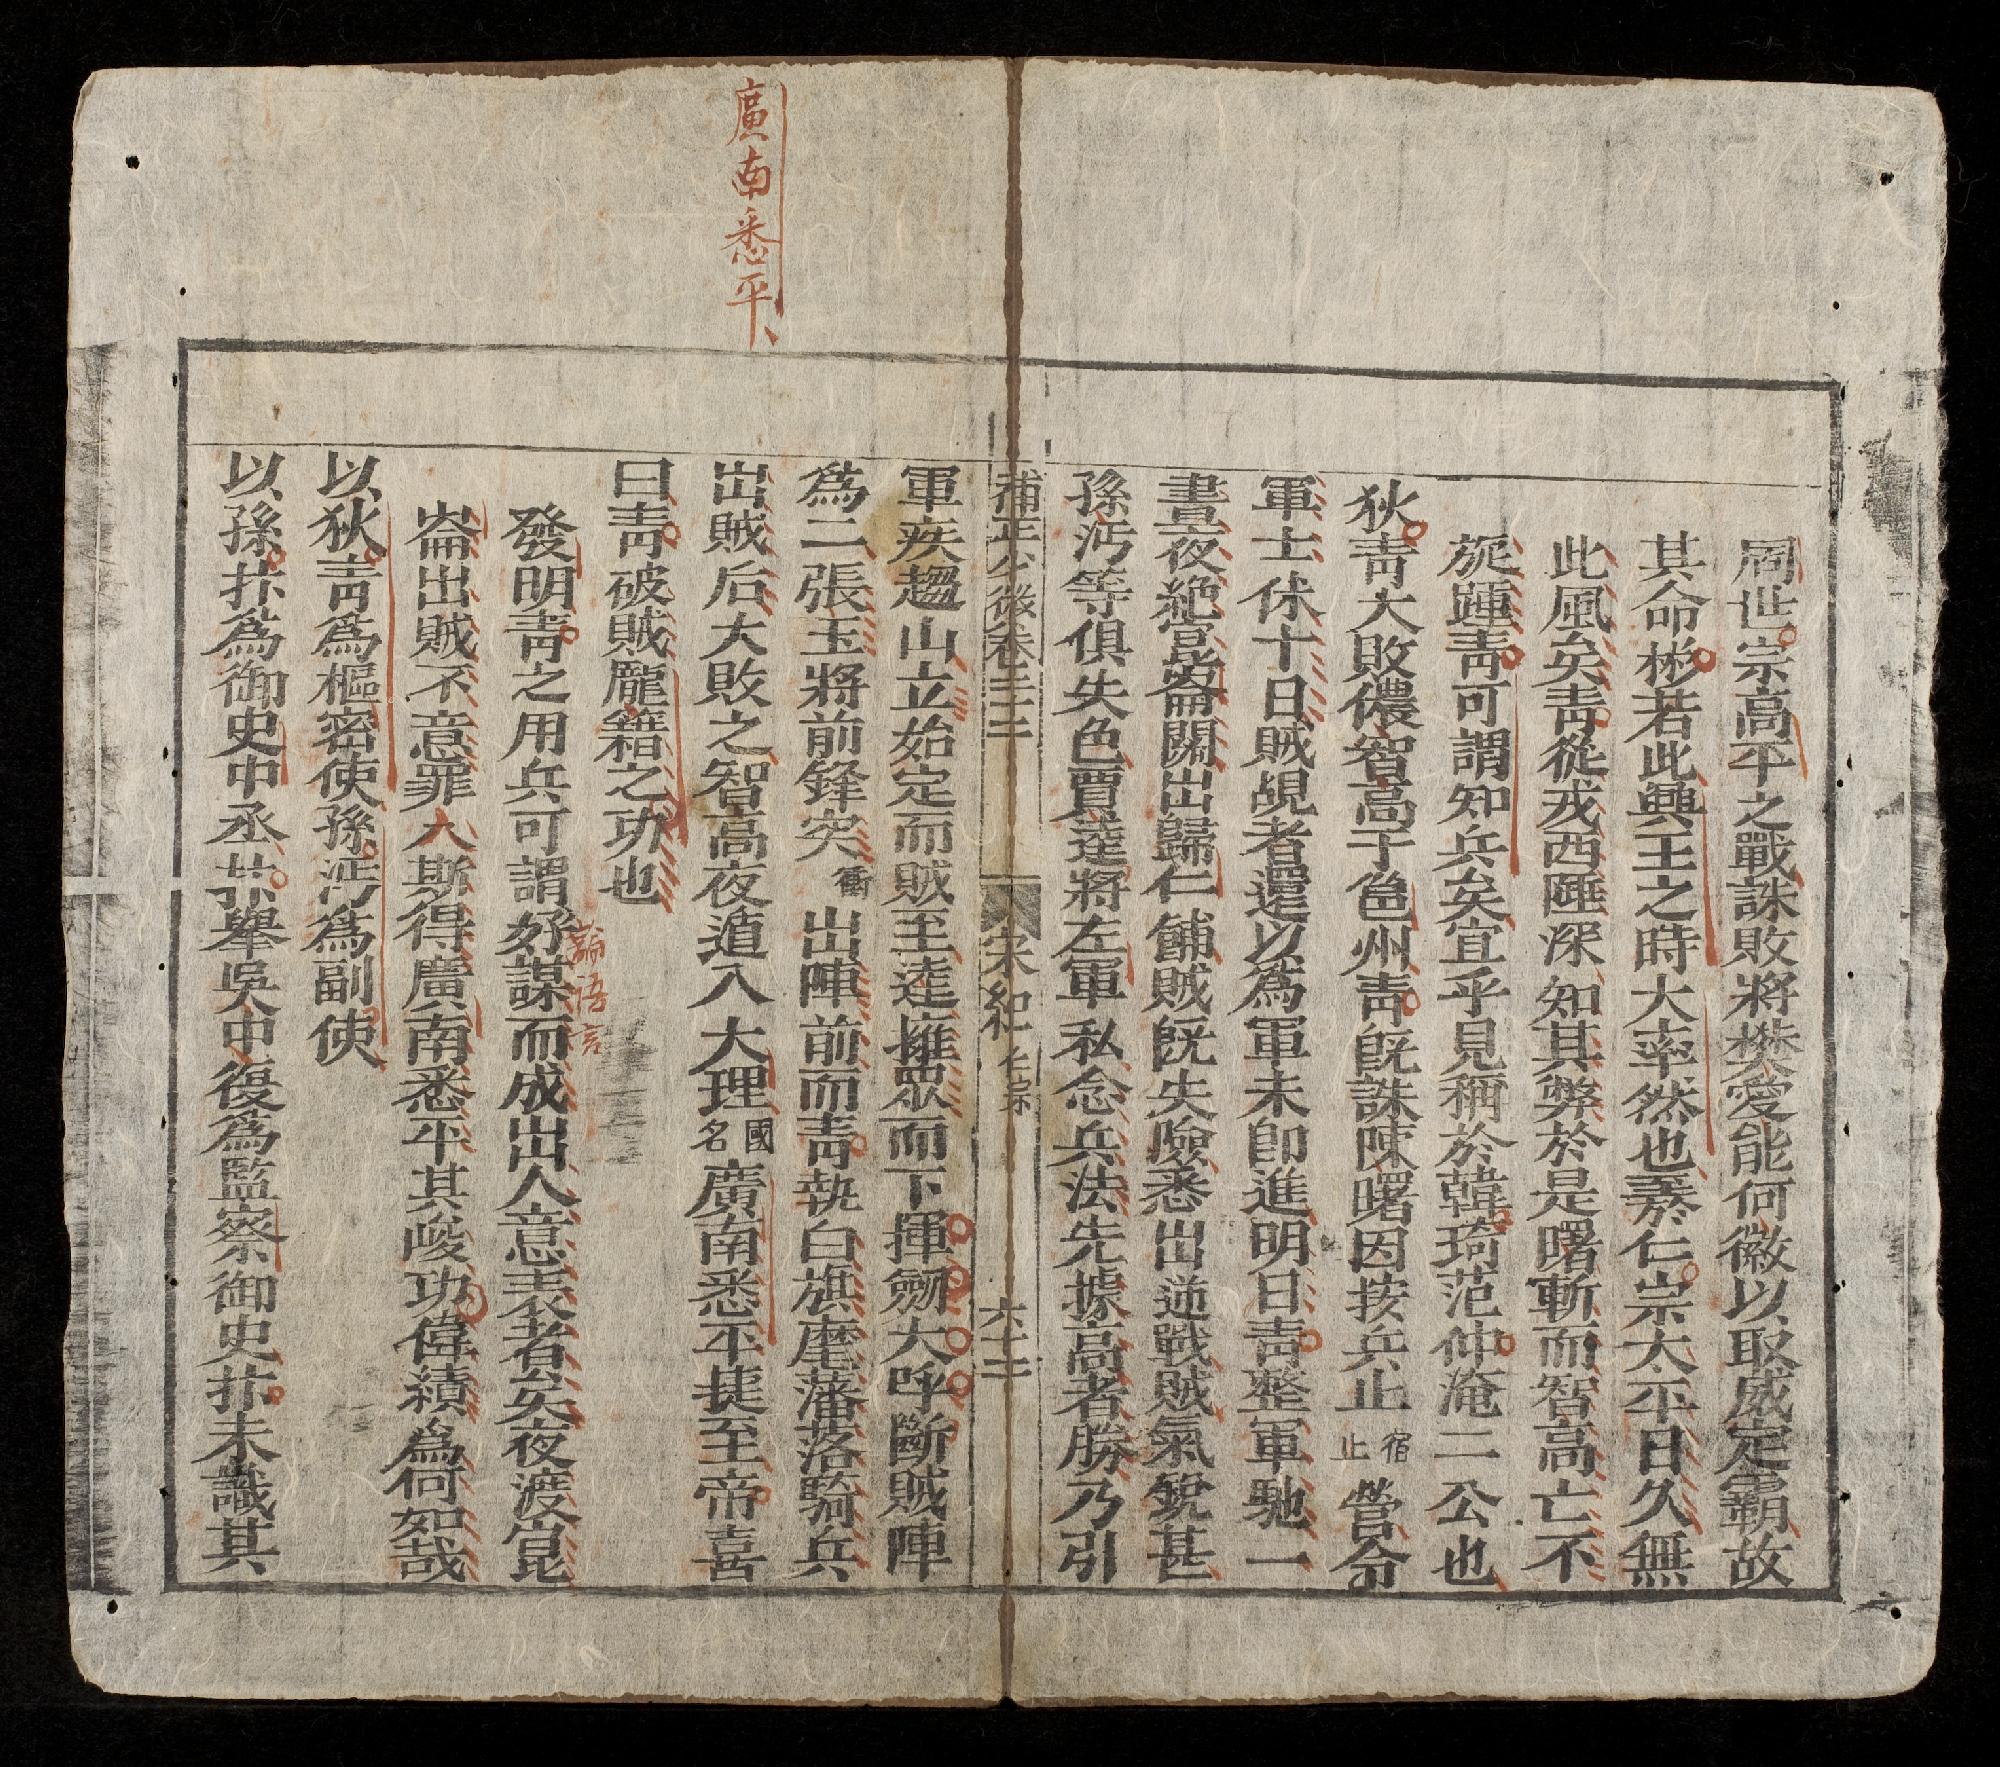 周世宗高平之戰誅敗將樊愛能何徽以取威定霸故
其命彬若此興王之時大率然也䅲仁宗太平日久無
此風矣靑從戎西陲深知其弊於是曙斬而智高亡不
旋踵靑可謂知兵矣宜乎見稱於韓琦范仲淹二公也
狄靑大敗儂智高于邕州靑旣誅陳曙因按兵止宿止營令
軍士休十日賊覘者還以爲軍未卽進明日靑整軍馳一
晝夜絶崑崙關出歸仁舖賊旣失險悉出逆戰賊氣銳甚
孫沔等俱失色賈逵將左軍私念兵法先據高者勝乃引
補正少微卷三三 宋紀 仁宗 六十二
軍疾趨山立始定而賊至逵擁眾而下揮劒大呼斷賊陣
爲二張玉將前鋒突衝出陣前而靑執白旗麾藩落騎兵
出賊后大敗之智高夜遁入大理國名廣南悉平捷至帝喜
曰靑破賊龐籍之功也
發明靑之用兵可謂好謀而成出人意表者矣夜渡崑
崙出賊不意罪人斯得廣南悉平其峻功偉績爲何如哉
以狄靑爲樞密使孫沔爲副使
以孫抃爲御史中丞抃舉吳中復爲監察御史抃未識其
廣南悉平
論語言